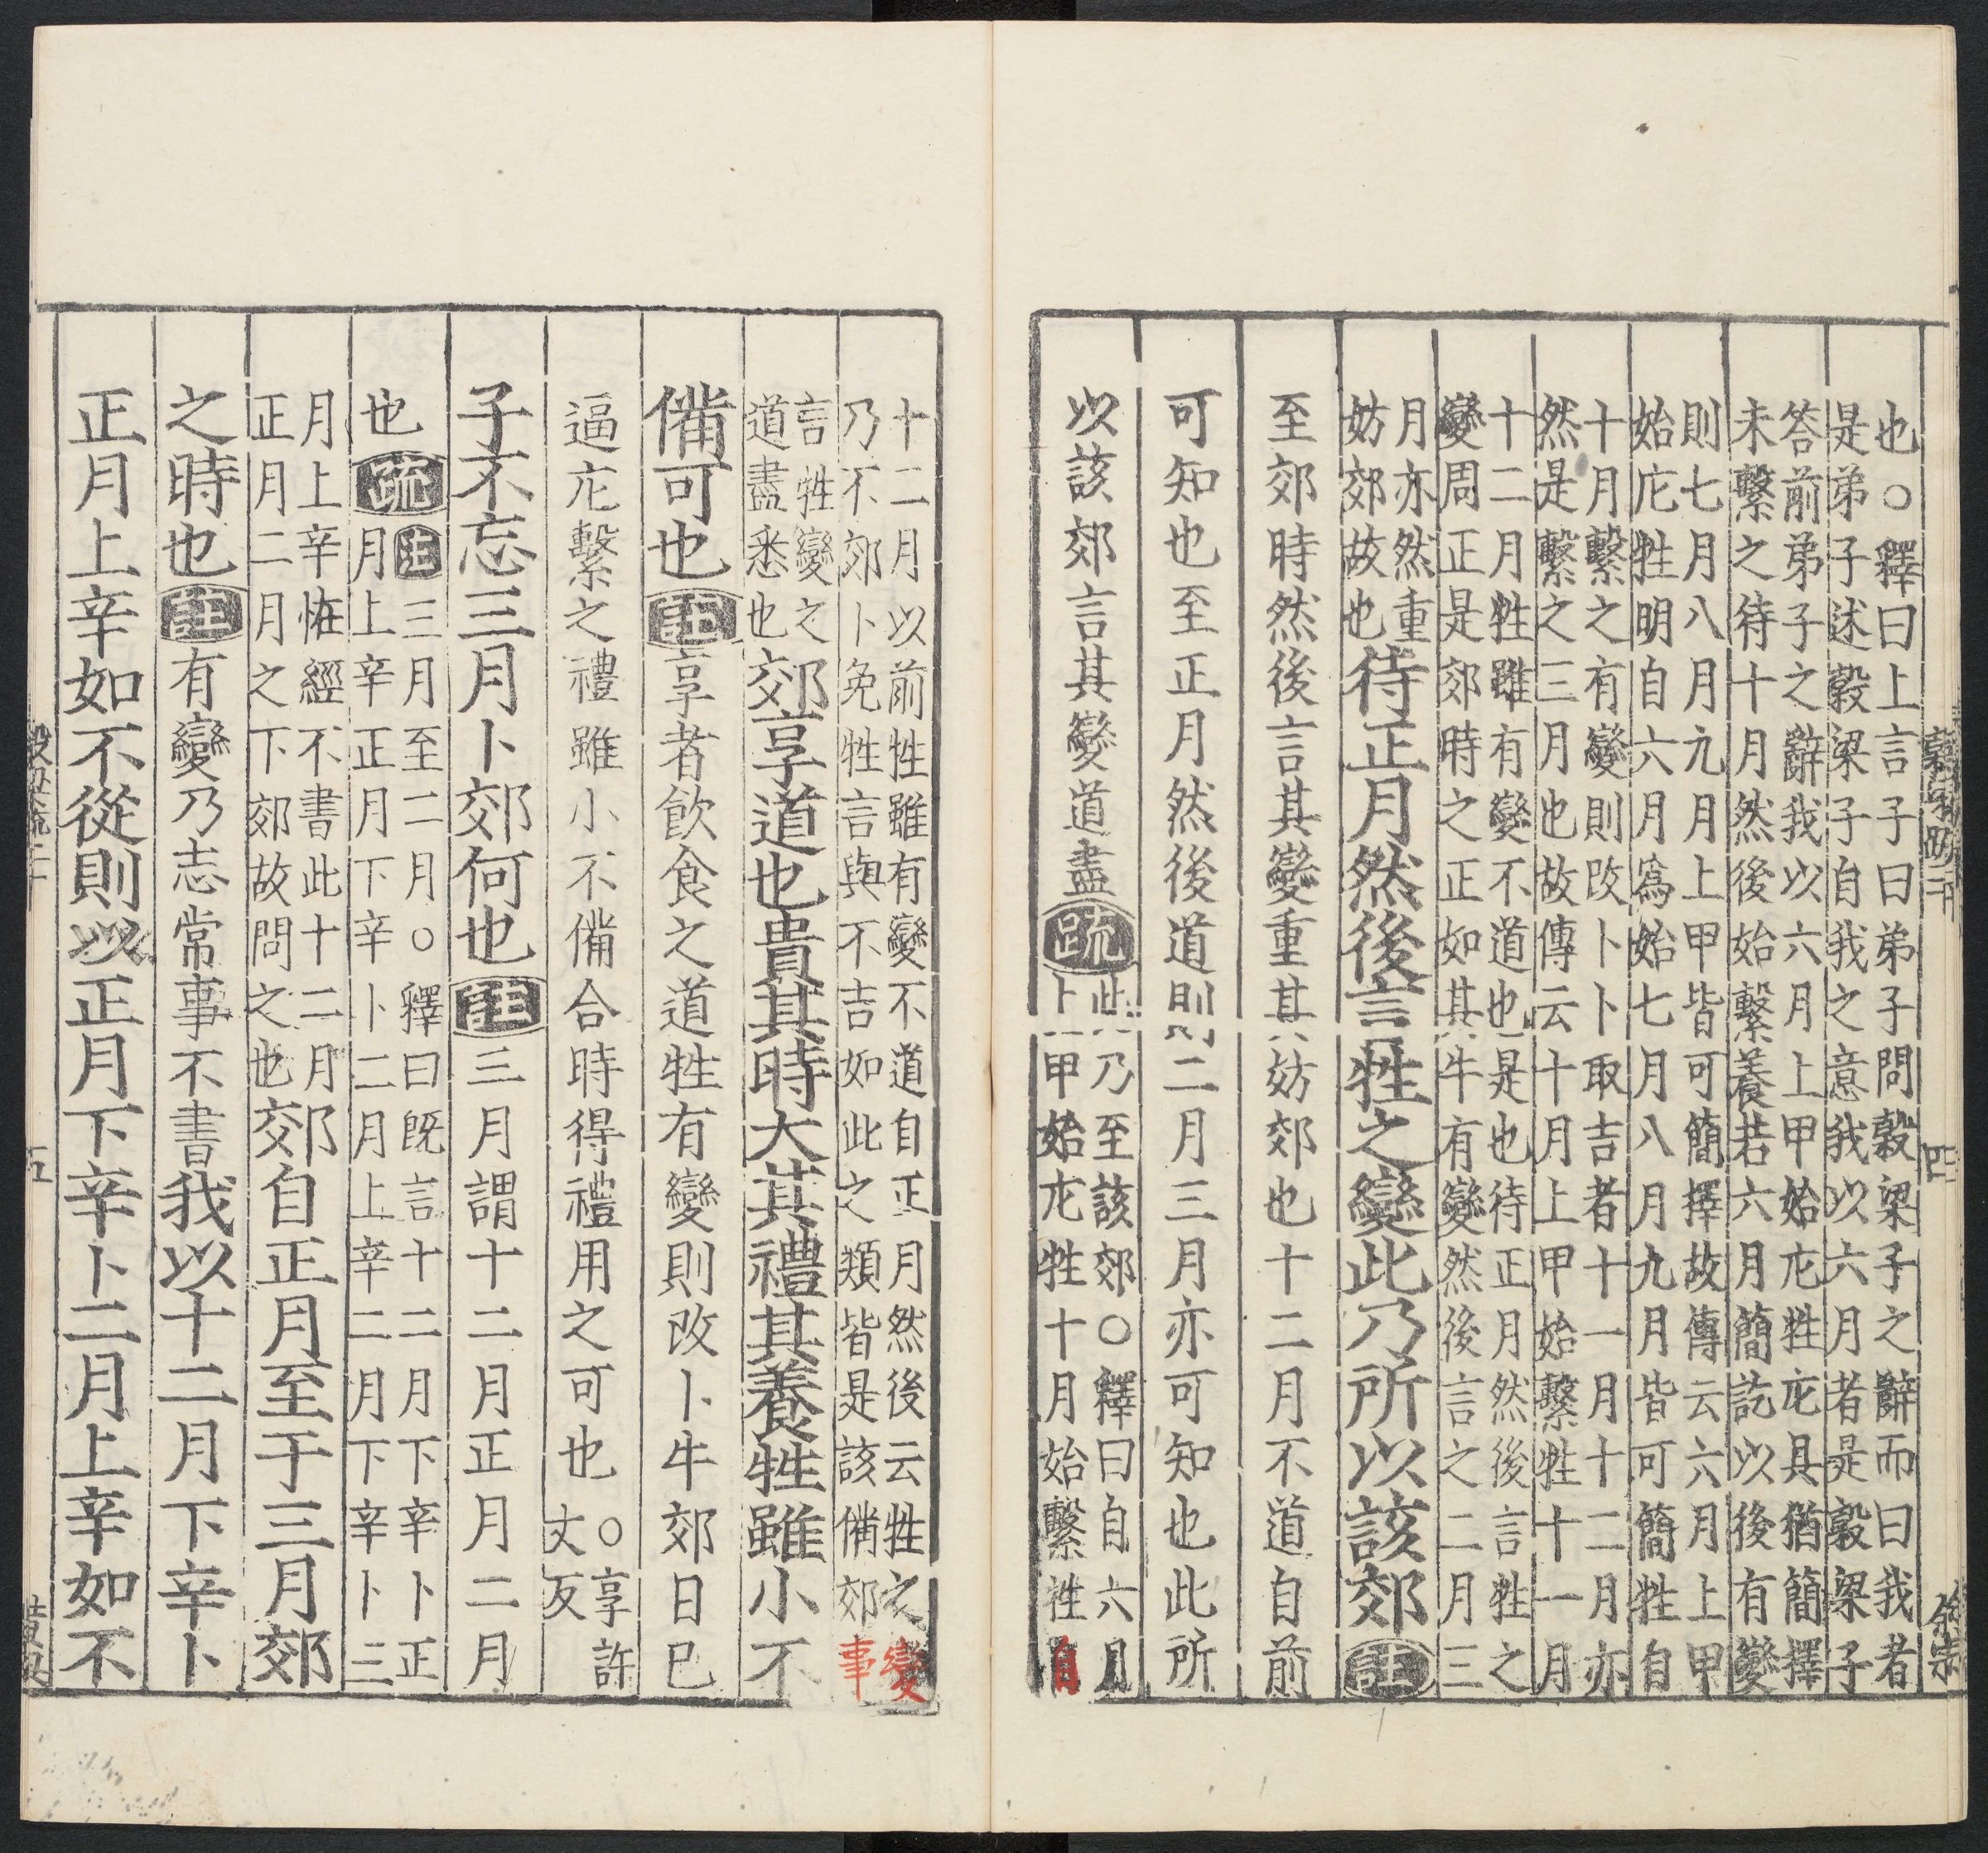 也○釋曰上言子曰弟子問穀梁子之辭而曰我者
是弟子述穀梁子自我之意我以六月者是穀梁子
答前弟子之辭我以六月上甲始庀牲庀具猶簡擇
未繫之待十月然後始繫養若六月簡訖以後有變
則七月八月九月上甲皆可簡擇故傳云六月上甲
始庀牲明自六月爲始七月八月九月皆可簡牲自
十月繫之有變則改卜卜取吉者十一月十二月亦
然是繫之三月也故傳云十月上甲始繫牲十一月
十二月牲雖有變不道也是也待正月然後言牲之
變周正是郊時之正如其牛有變然後言之二月三
月亦然重
妨郊故也
待正月然後言牲之變此乃所以該郊註
至郊時然後言其變重其妨郊也十二月不道自前
可知也至正月然後道則二月三月亦可知也此所
以該郊言其變道盡疏
此乃至該郊○釋曰自六月
上甲始庀牲十月始繫牲自
十二月以前牲雖有變不道自正月然後云牲之變
乃不郊卜免牲言與不吉如此之類皆是該備郊事
言牲變之
道盡悉也
郊享道也貴其時大其禮其養牲雖小不
備可也註享者飲食之道牲有變則改卜牛郊日已
逼庀繫之禮雖小不備合時得禮用之可也
○享許
丈反
子不忘三月卜郊何也註三月謂十二月正月二月
也疏
註三月至二月○釋曰既言十二月下辛卜正
月上辛正月下辛卜二月上辛二月下辛卜三
月上辛恠經不書此十二月
正月二月之下郊故問之也
郊自正月至于三月郊
之時也註有變乃志常事不書我以十二月下辛卜
正月上辛如不從則以正月下辛卜二月上辛如不
穀梁疏二十
四
余宗
五